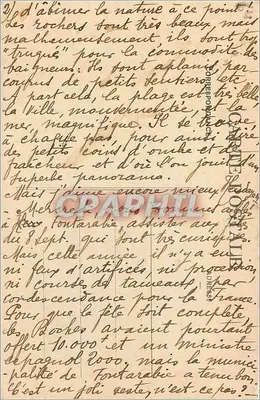 2/ d'abîmer la nature à ce point !
Les rochers sont très beaux, mais
malheureusement, ils sont trop
"truqués" pour la commodité des
baigneurs: Ils sont aplanis, par
de petits sentiers etc
A part cela, la plage est très belle,
la ville mouvementée et la
mer magnifique. Il se trouve,
à chaque pas, pour ainsi dire
des petits coins d'ombre et de
fraîcheur et d'où l'on jouit d'un
superbe panorama.
Mais j'aime encore mieux
à Fontarabie assister aux
du 7 sept. qui sont très curieuses.
Mais cette année il n'y a eu
ni feux d'artifices, ni procession
ni courses de taureaux, par
condescendance pour la France.
Pour que la fête soit complète
les Boches avaient pourtant
offert 10.000 et un ministre
espagnol 2000, mais la munici-
palité de Fontarabie a tenu bon.
C'est un joli geste, n'est-ce pas ?
CARTE POSTALE
CORRESPONDANCE
CPAPHIL